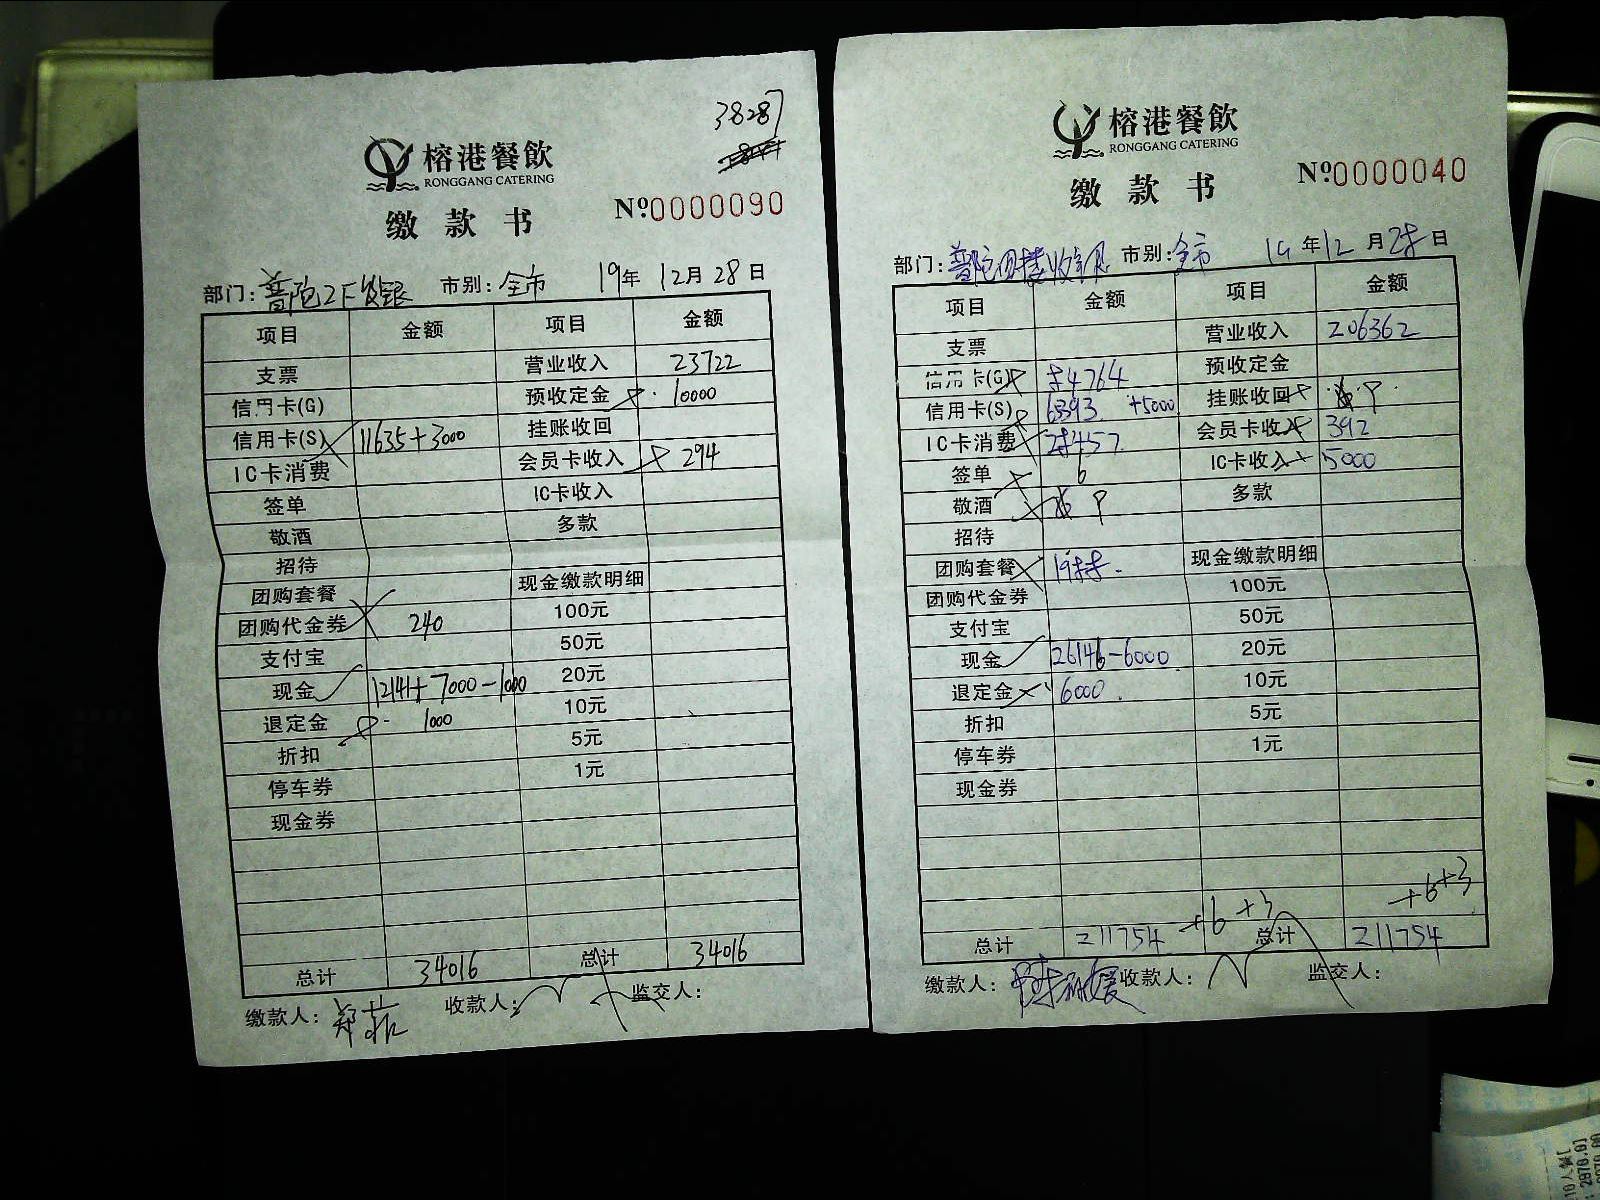 38287
榕港餐飲
RONGGANG CATERING
缴款书
Nº0000090
部门:普陀2F收银 市别:全市 19年12月28日
项目 金额 项目 金额
支票 营业收入 23722
信用卡(G) 预收定金 10000
信用卡(S) 11635+3000 挂账收回
IC卡消费 会员卡收入 294
签单 IC卡收入
敬酒 多款
招待
团购套餐 现金缴款明细
团购代金券 240 100元
支付宝 50元
现金 12141+7000-1000 20元
退定金 1000 10元
折扣 5元
停车券 1元
现金券
总计 34016 总计 34016
缴款人: 郑菲 收款人: 监交人:
榕港餐飲
RONGGANG CATERING
缴款书
Nº0000040
部门:普陀 收银 市别:全市 19年12月28日
项目 金额 项目 金额
支票 营业收入 206362
信用卡(G) 84764 预收定金
信用卡(S) 6393 +5000 挂账收回
IC卡消费 28457 会员卡收入 392
签单 6 IC卡收入 5000
敬酒 多款
招待
团购套餐 1988 现金缴款明细
团购代金券 100元
支付宝 50元
现金 26146-6000 20元
退定金 6000 10元
折扣 5元
停车券 1元
现金券
+6+3 +6+3
总计 211754 总计 211754
缴款人: 收款人: 监交人: